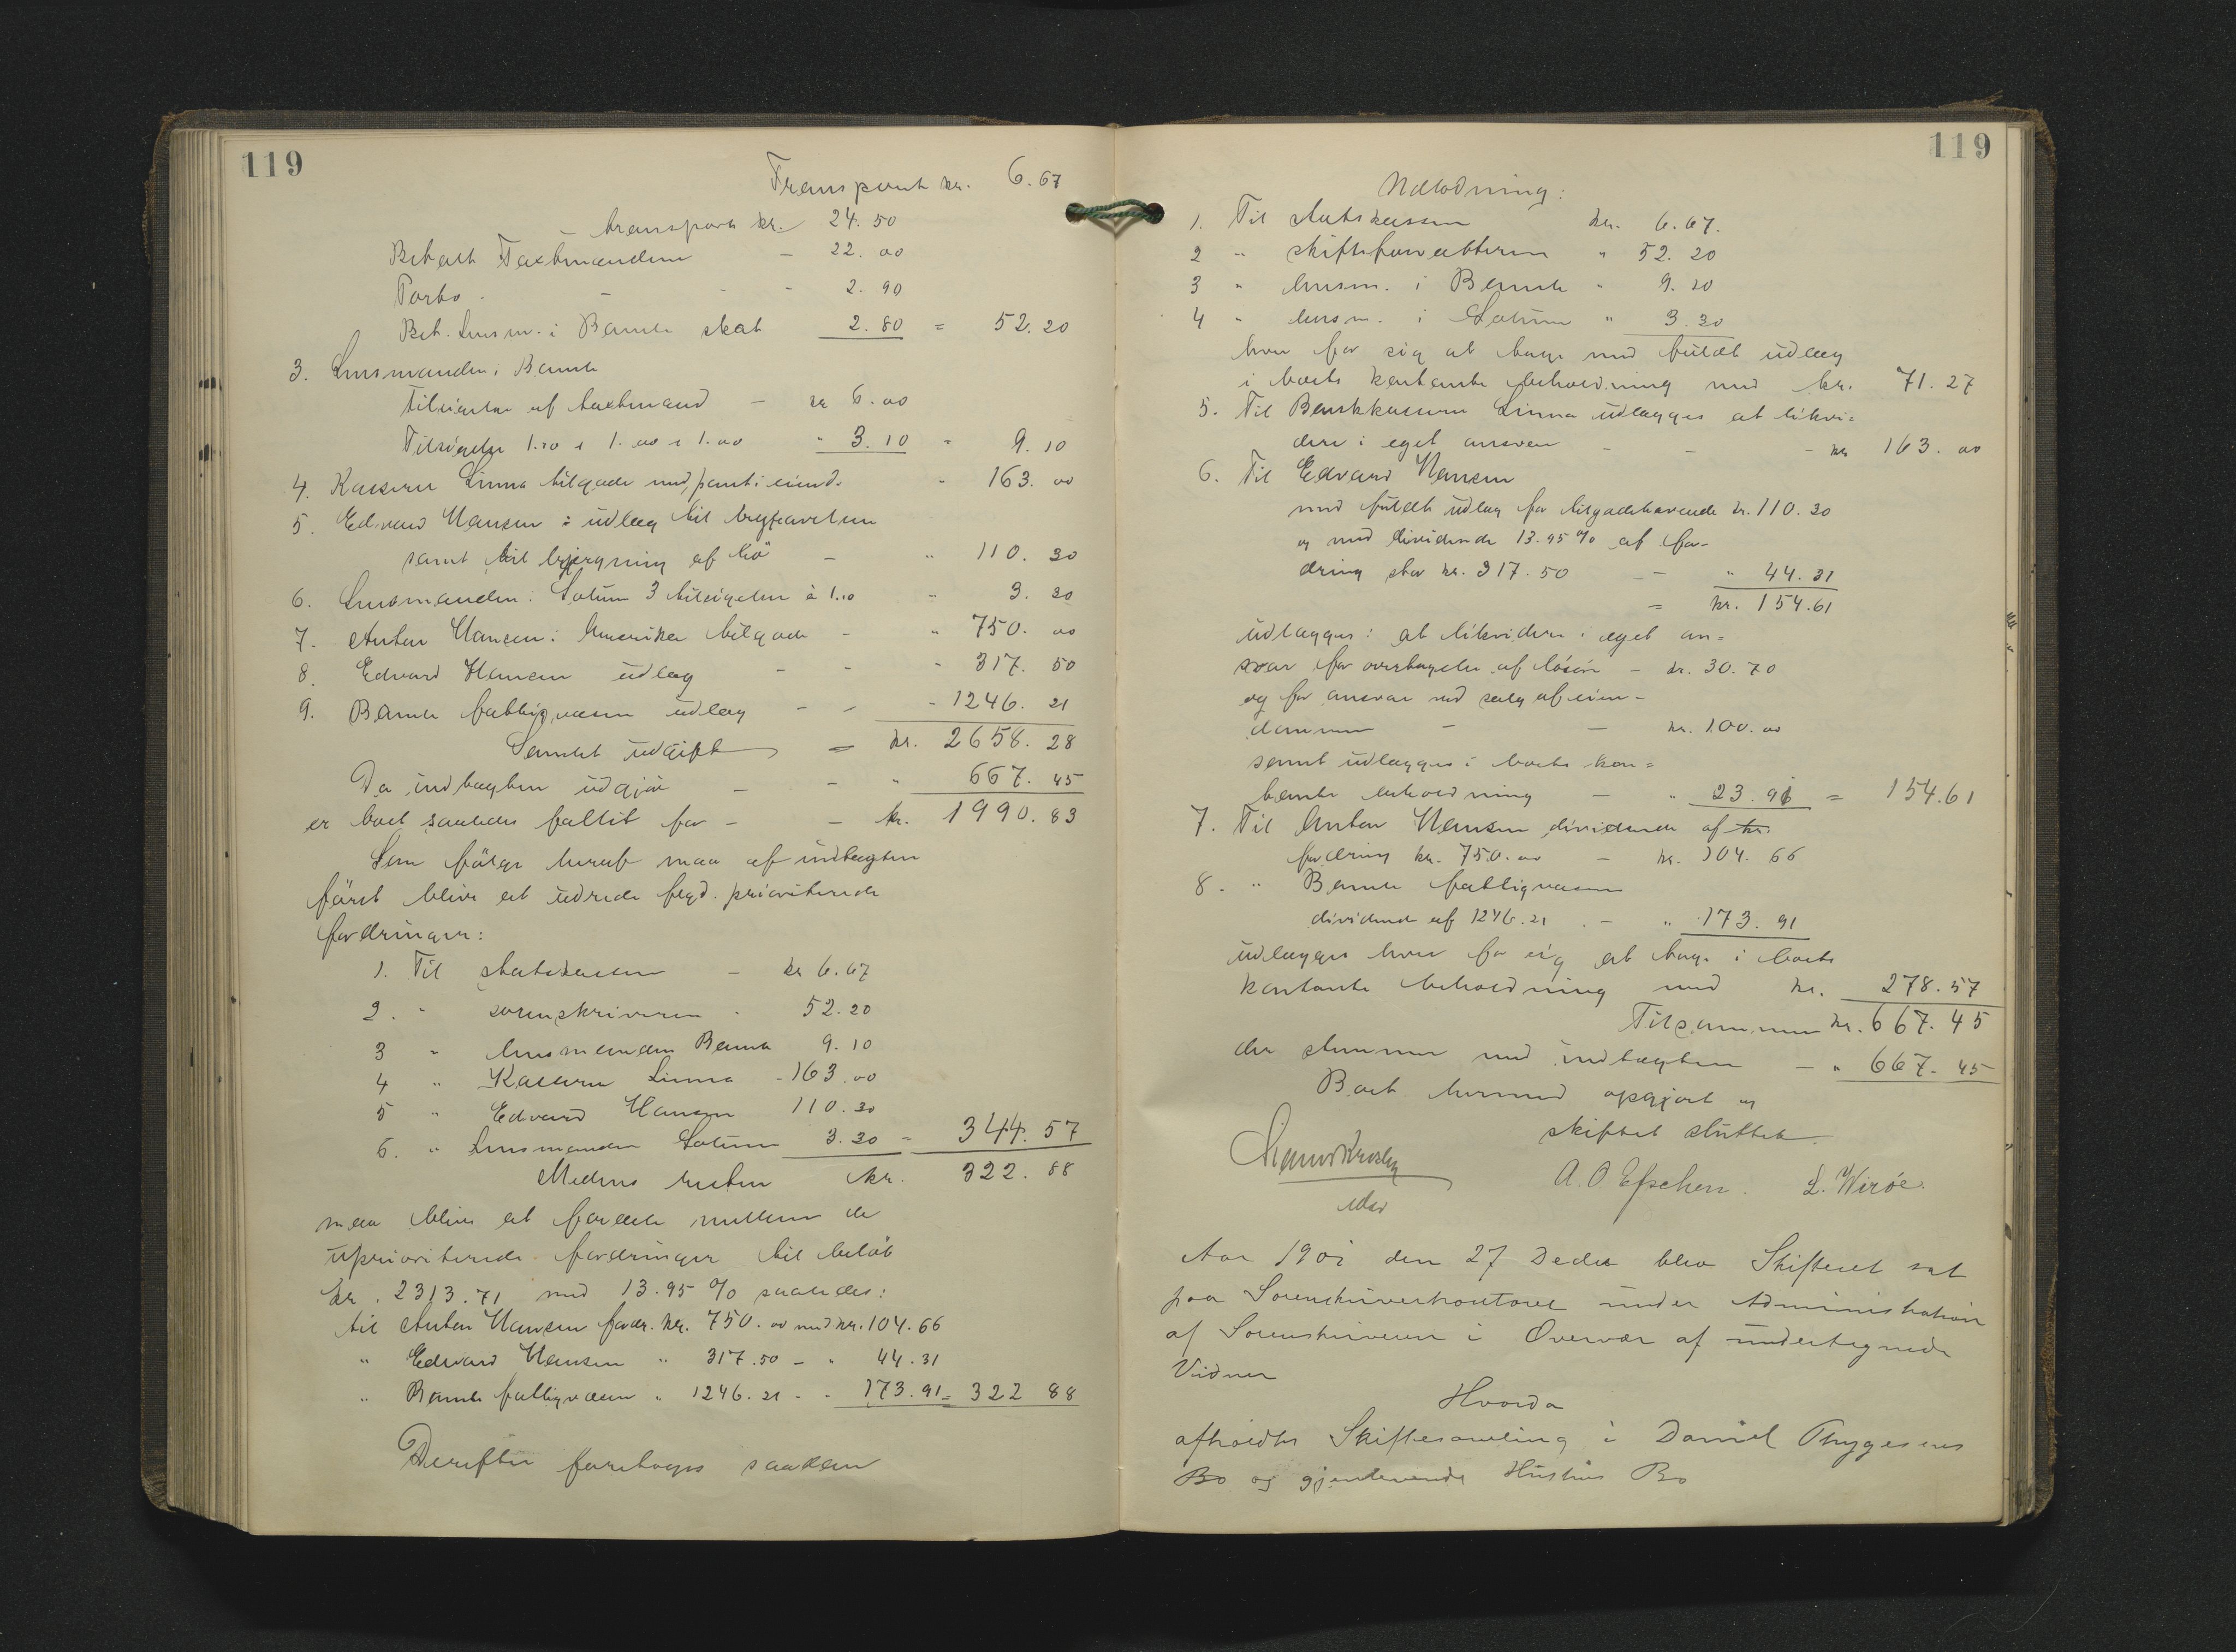 119
Transport kr. 6.67
transport kr. 24.50
Betalt Taxtmændene - 22.00
Porto - - - 2.90
Bet. Lensm. i Bamle skat 2.80 = 52.20
3. Lensmanden i Bamle
Tilsigelse af taxtmænd - kr 6.00
Tilsigelse 1.10 + 1.00 + 1.00 " 3.10 - 9.10
4. Kasserer Linna tilgode med pant i eiend. " 163.00
5. Edvard Hansen: udlæg til begravelsen
samt til bjergning af hö - " 110.30
6. Lensmanden i Solum 3 tilsigelser à 1.10 " 3.30
7. Anton Hansen i Amerika tilgode - " 750.00
8. Edvard Hansen udlæg - - " 317.50
9. Bamle fattigvæsen udlæg - - - 1246.21
Samlet udgift = kr. 2658.28
Da indtægten udgjör - - " 667.45
er boet saaledes fallit for - - kr. 1990.83
Som fölge heraf maa af indtægten
först blive at udrede flgd. prioriterede
fordringer:
1. Til statskassen - kr 6.67
2. " sorenskriveren - 52.20
3 " lensmanden Bamle 9.10
4 " Kasserer Linna - 163.00
5 " Edvard Hansen 110.30
6. " Lensmanden Solum 3.30 = 344.57
Medens resten kr. 322.88
maa blive at fordele mellem de
uprioriterede fordringer til beløb
kr. 2313.71 med 13.95 % saaledes:
til Anton Hansen fordr. kr. 750.00 med kr. 104.66
" Edvard Hansen " 317.50 - " 44.31
" Bamle fattigvæsen " 1246.21 - " 173.91 = 322 88
Derefter foretoges saadan
119
Udlodning:
1. Til statskassen kr. 6.67.
2 " skifteforvalteren " 52.20
3 " lensm. i Bamle " 9.10
4 " lensm. i Solum " 3.30
hver for sig at tage med fuldt udlæg
i boets kontante beholdning med kr. 71.27
5. Til Bankkasserer Linna udlægges at likvi=
dere i eget ansvar - - - kr 163.00
6. Til Edvard Hansen
med fuldt udlæg for tilgodehavende kr. 110.30
og med dividende 13.95 % af for-
dring stor kr. 317.50 - - " 44.31
= kr. 154.61
udlægges: at likvidere i eget an=
svar for overtagelse af lösöre - kr. 30.70
og for ansvar ved salg af eien-
dommen - - kr. 100.00
samt udlægges i boets kon=
tante beholdning - " 23.91 = 154.61
7. Til Anton Hansen dividende af kr.
fordring kr. 750.00 - kr. 104.66
8. " Bamle fattigvæsen
dividende af 1246.21 - " 173.91
udlægges hver for sig at tage i boets
kontante beholdning med kr. 278.57
Tilsammen kr. 667.45
der stemmer med indtægten - " 667.45
Boet hermed opgjort og
skiftet sluttet.
A. O. Eschen. L. Wiröe.
Aar 1901 den 27 Decbr blev Skifteret sat
paa Sorenskriverkontoret under Administration
af Sorenskriveren i Overvær af undertegnede
Vidner
Hvorda
afholdtes Skiftesamling i Daniel Thygesens
Bo og gjenlevende Hustrus Bo